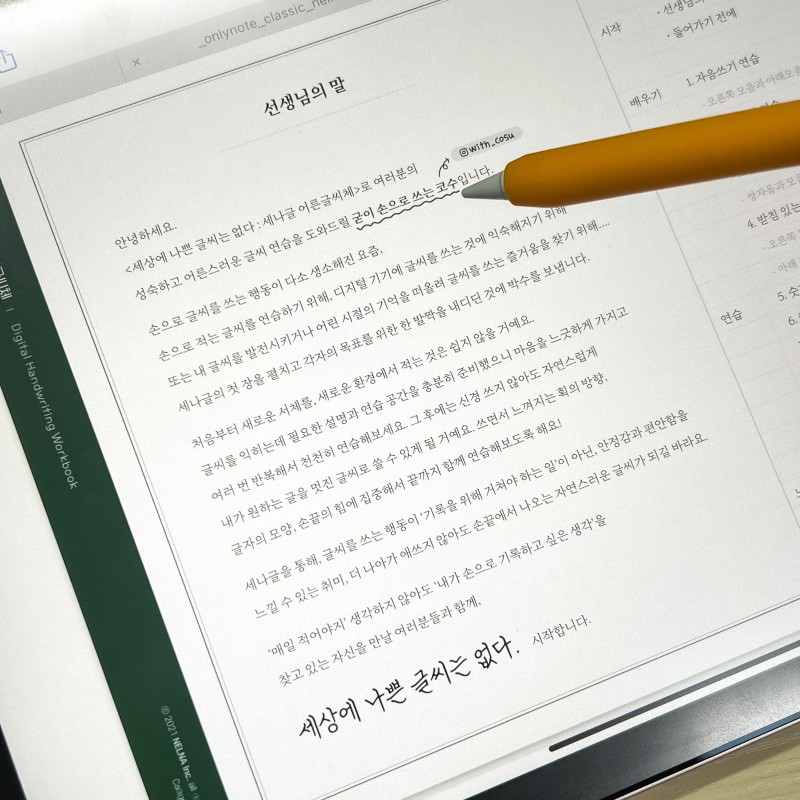 _onlynote_classic_nel
선생님의 말
@with_cosu
안녕하세요.
<세상에 나쁜 글씨는 없다 : 세나글 어른글씨체>로 여러분의
성숙하고 어른스러운 글씨 연습을 도와드릴 굳이 손으로 쓰는 코수입니다.
손으로 글씨를 쓰는 행동이 다소 생소해진 요즘,
손으로 적는 글씨를 연습하기 위해, 디지털 기기에 글씨를 쓰는 것에 익숙해지기 위해
또는 내 글씨를 발전시키거나 어린 시절의 기억을 떠올려 글씨를 쓰는 즐거움을 찾기 위해....
세나글의 첫 장을 펼치고 각자의 목표를 위한 한 발짝을 내디딘 것에 박수를 보냅니다.
처음부터 새로운 서체를, 새로운 환경에서 적는 것은 쉽지 않을 거예요.
글씨를 익히는데 필요한 설명과 연습 공간을 충분히 준비했으니 마음을 느긋하게 가지고
여러 번 반복해서 천천히 연습해보세요. 그 후에는 신경 쓰지 않아도 자연스럽게
내가 원하는 글을 멋진 글씨로 쓸 수 있게 될 거예요. 쓰면서 느껴지는 획의 방향,
글자의 모양, 손끝의 힘에 집중해서 끝까지 함께 연습해보도록 해요!
세나글을 통해, 글씨를 쓰는 행동이 '기록을 위해 거쳐야 하는 일'이 아닌, 안정감과 편안함을
느낄 수 있는 취미, 더 나아가 애쓰지 않아도 손끝에서 나오는 자연스러운 글씨가 되길 바라요.
'매일 적어야지' 생각하지 않아도 '내가 손으로 기록하고 싶은 생각'을
찾고 있는 자신을 만날 여러분들과 함께,
세상에 나쁜 글씨는 없다. 시작합니다.
Digital Handwriting Workbook
© 2021 NELNA Inc. all
시작
· 선생님의
· 들어가기 전에
배우기
1. 자음쓰기 연습
- 오른쪽 모음과 아래모음
- 쌍자음과 모음
4. 받침 있는
- 오른쪽
- 아래
연습
5. 숫
6.